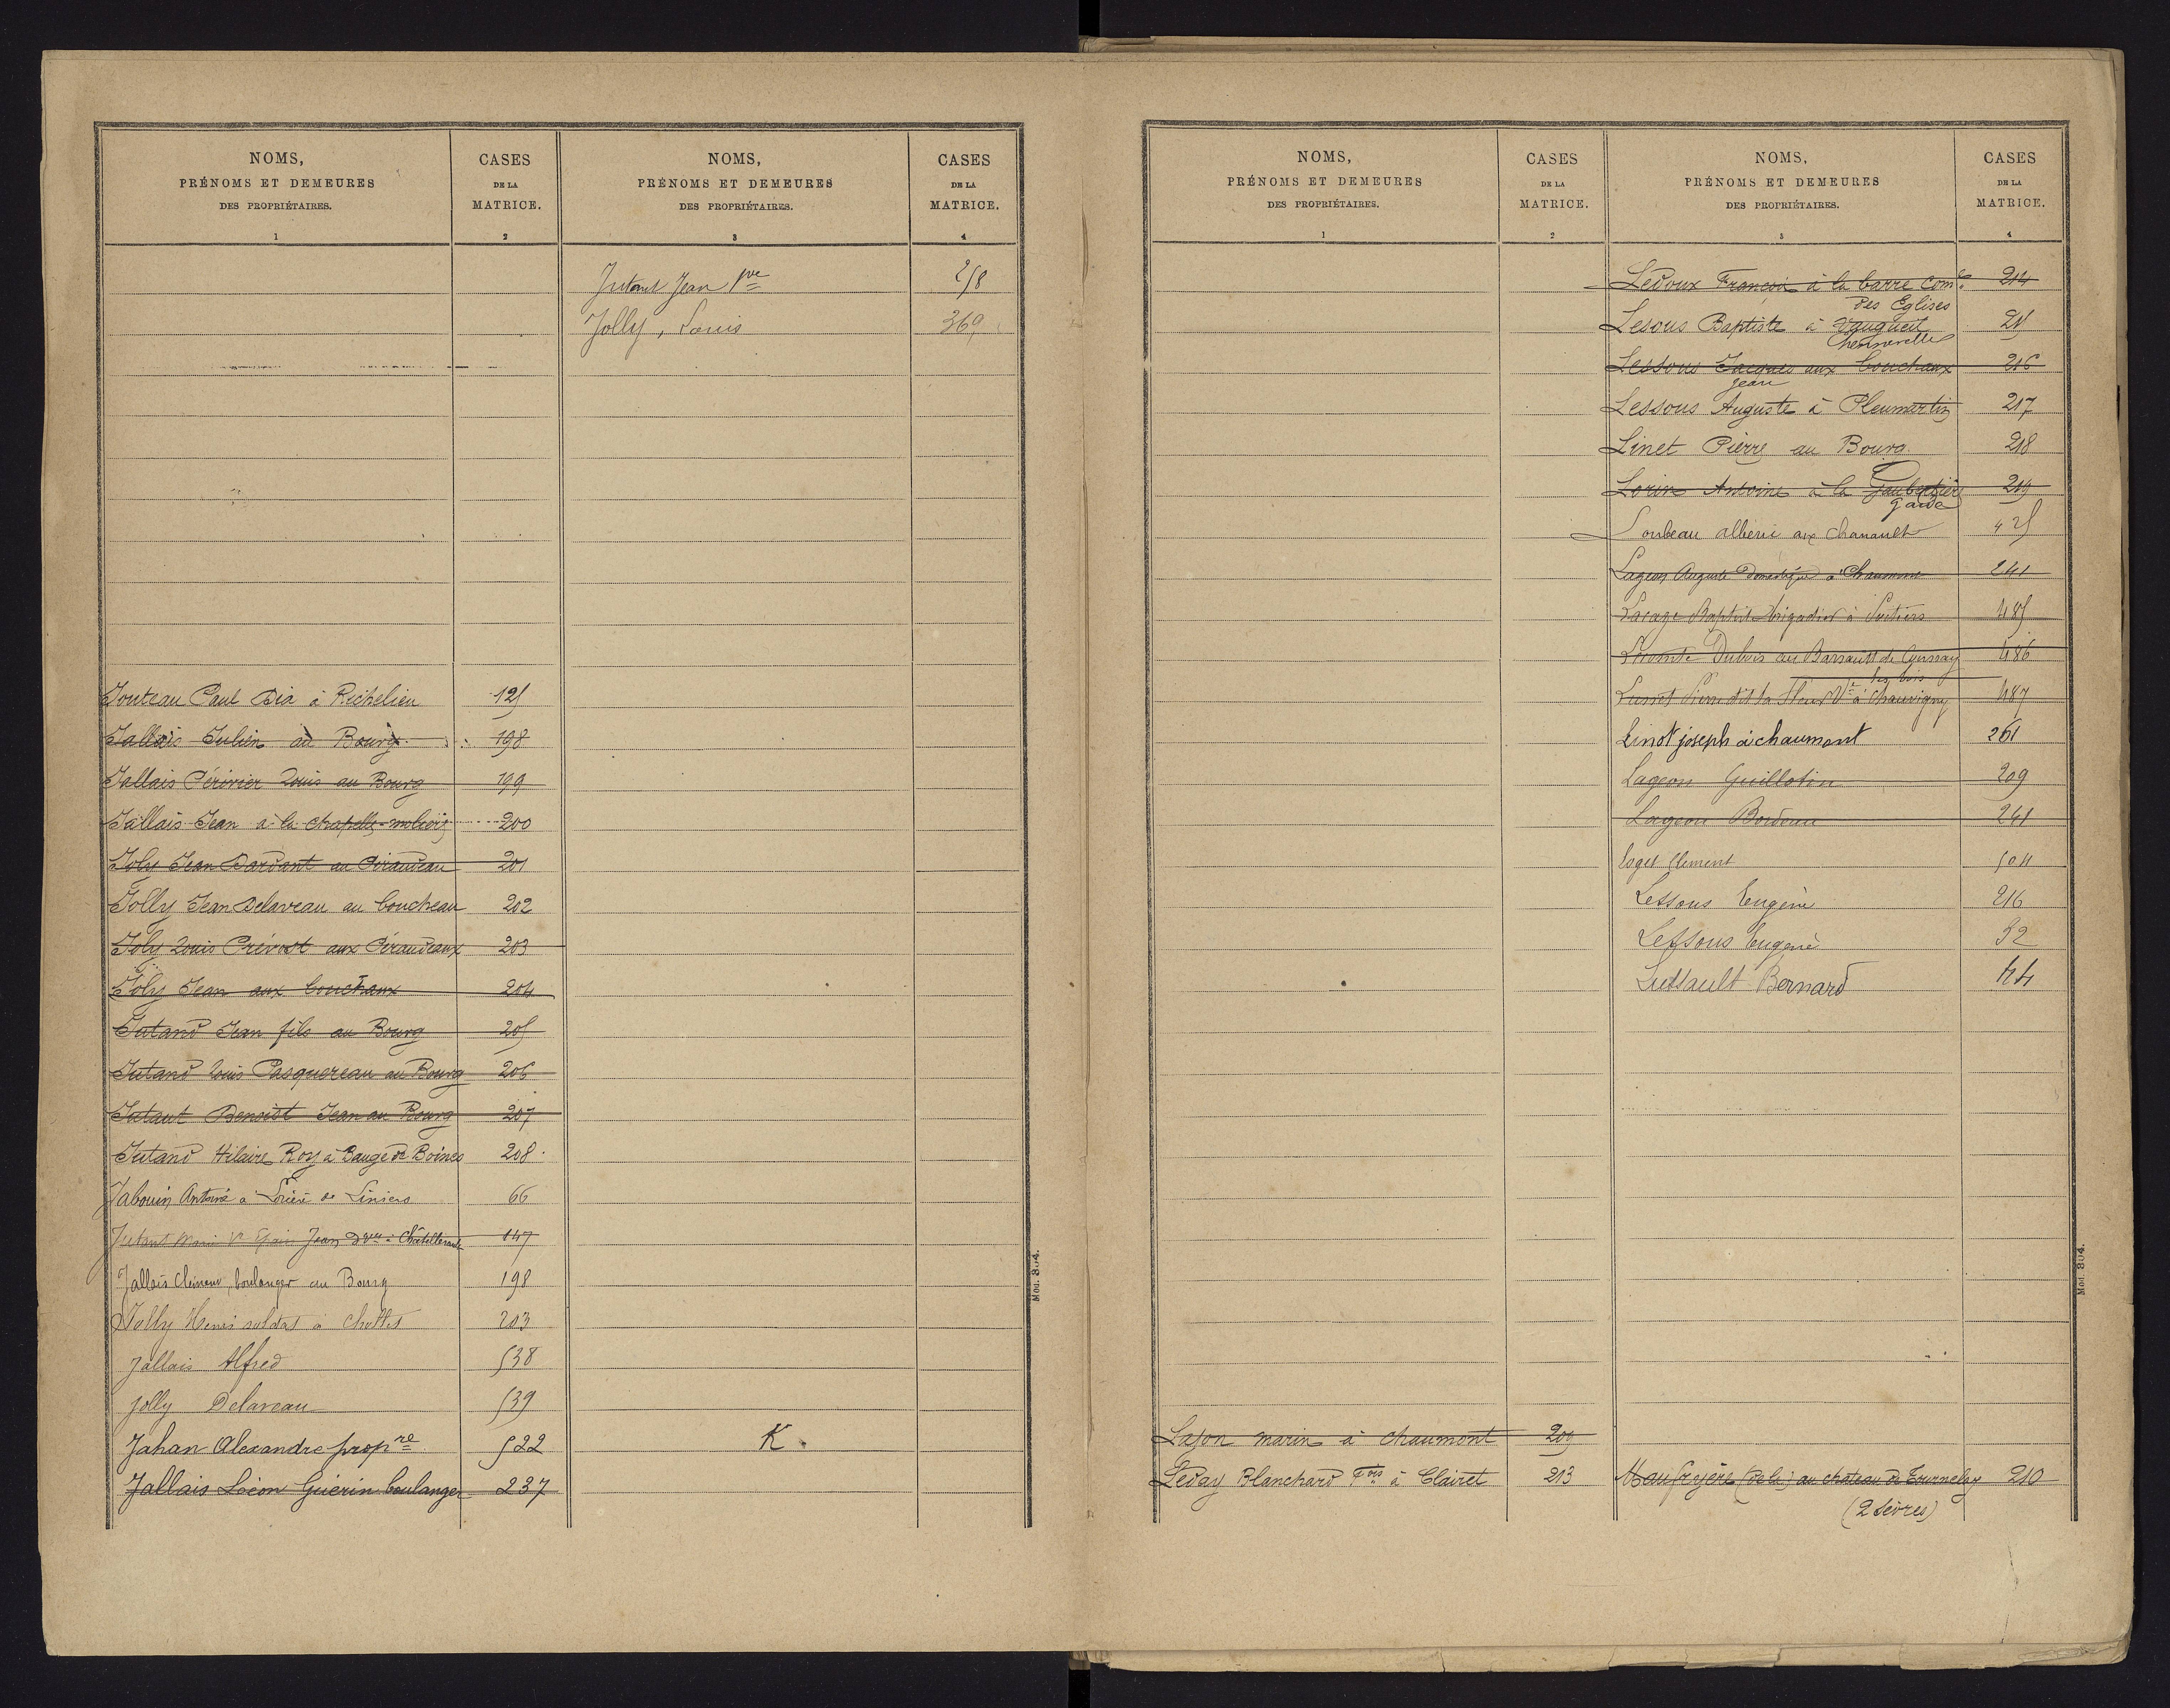 NOMS,
PRÉNOMS ET DEMEURES
DES PROPRIÉTAIRES.
1
CASES
DE LA
MATRICE.
2
Jouteau Paul Dia à Richelieu 125
Jallais Julien au Bourg 198
Jallais Périvier Louis au Bourg 199
Jallais Jean à la chapelle-molière 200
Joly Jean Dardant au Péraudeau 201
Jolly Jean Delaveau au boucheau 202
Joly Louis Prévost aux Péraudeaux 203
Joly Jean aux bouchaux 204
Jutand Jean fils au Bourg 205
Jutand Louis Pasquereau au Bourg 206
Jutaut Benoist Jean au Bourg 207
Jutand Hilaire Roy à Bauge de Boines 208
Jabouin Antoine à de Liniers 66
Jutant Marie Vve Jean à Châtellerault 147
Jallais Clément, boulanger au Bourg 198
Jolly Henri soldat à Chollet 203
Jallais Alfred 538
Jolly Delaveau 539
Jahan Alexandre propre 522
Jallais Léon Guérin boulanger 237
NOMS,
PRÉNOMS ET DEMEURES
DES PROPRIÉTAIRES.
3
CASES
DE LA
MATRICE.
4
Jutant Jean 258
Jolly, Louis 369
K.
Mod. 804.
NOMS,
PRÉNOMS ET DEMEURES
DES PROPRIÉTAIRES.
1
CASES
DE LA
MATRICE.
2
Lajon marin à chaumont 209
Leday Blanchard Fois à Clairet 213
NOMS,
PRÉNOMS ET DEMEURES
DES PROPRIÉTAIRES.
3
CASES
DE LA
MATRICE.
4
Ledoux François à la barre Comne 214
des Eglises
Lesous Baptiste à Vaugueil 215
Chenevelles
Lessous Jacques aux bouchaux 216
Jean
Lessous Auguste à Pleumartin 217
Linet Pierre au Bourg 218
Lorin Antoine à la Jaubertière 219
garde
Loubeau alberic aux Chanault 425
Lageon Auguste Domestique à Chaumont 241
Lacaze Baptiste brigadier à Poitiers 485
Lecomte Dubois au Barrault de Cussay 486
les bois
Pierre dit la Fleur Ve à Chauvigny 487
Linot joseph à chaumont 261
Lageon Guillotin 209
Lageon Bordeau 241
Loget Clement 504
Lessous Eugène 216
Lessous Eugène 52
Lussault Bernard 44
Maufreyère (de la) au château de Tournelay 210
(2 Sèvres)
Mod. 804.